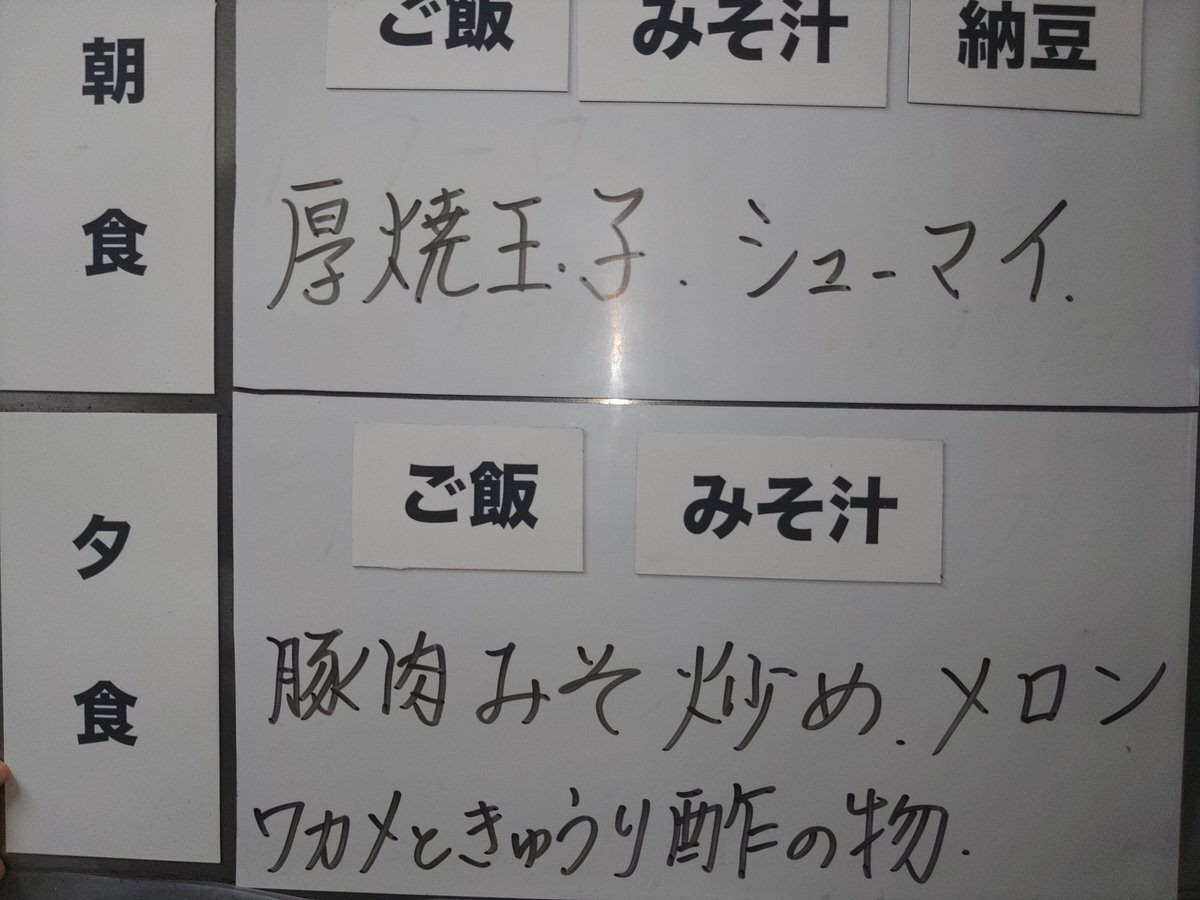 朝食
ご飯 みそ汁 納豆
厚焼玉子. シューマイ.
夕食
ご飯 みそ汁
豚肉みそ炒め. メロン
ワカメときゅうり酢の物.